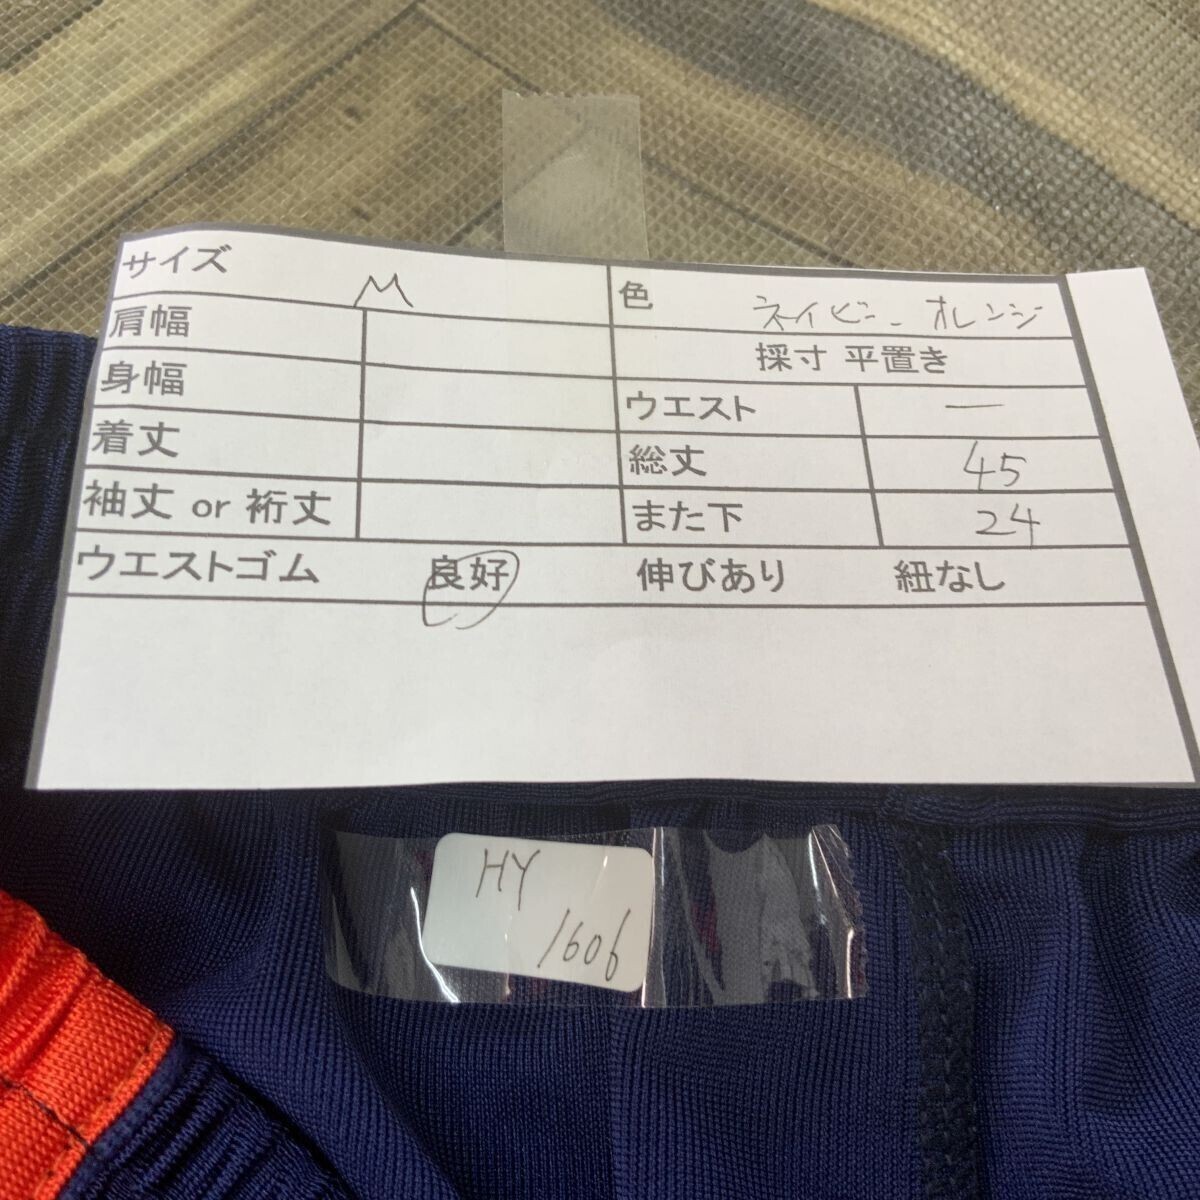 サイズ M 色 ネイビー、オレンジ
肩幅 採寸 平置き
身幅 ウエスト ー
着丈 総丈 45
袖丈 or 裄丈 また下 24
ウエストゴム 良好 伸びあり 紐なし
HY
1606